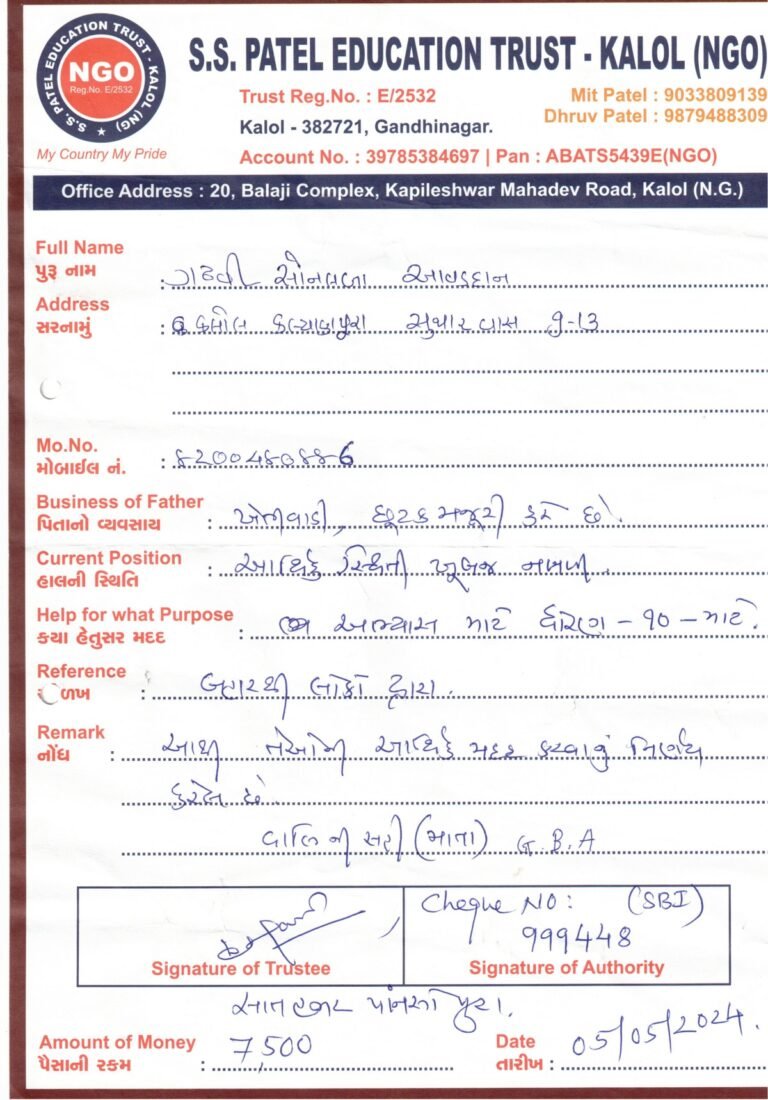 S.S. PATEL EDUCATION TRUST - KALOL (NG)
NGO
Reg.No. E/2532
My Country My Pride
S.S. PATEL EDUCATION TRUST - KALOL (NGO)
Trust Reg.No. : E/2532
Mit Patel : 9033809139
Kalol - 382721, Gandhinagar.
Dhruv Patel : 9879488309
Account No. : 39785384697 | Pan : ABATS5439E(NGO)
Office Address : 20, Balaji Complex, Kapileshwar Mahadev Road, Kalol (N.G.)
Full Name
પુરૂ નામ : ગઢવી સોનલબા આવડદાન
Address
સરનામું : કલોલ કલ્યાણપુરા સુથાર વાસ ૧-૧૩
Mo.No.
મોબાઈલ નં. :
Business of Father
પિતાનો વ્યવસાય : ખેતીવાડી, છૂટક મજૂરી કરે છે.
Current Position
હાલની સ્થિતિ : આર્થિક સ્થિતી ખૂબજ નબળી.
Help for what Purpose
કયા હેતુસર મદદ : અભ્યાસ માટે ધોરણ - ૧૦ - માટે.
Reference
ળખ : બહારથી લોકો દ્વારા.
Remark
નોંધ : આથી તેઓની આર્થિક મદદ કરવાનું નિર્ણય
કરેલ છે.
વાલિ ની સહી (માતા) G.B.A
Cheque NO: (SBI)
999448
Signature of Trustee
Signature of Authority
સાત હજાર પાંચસો પુરા.
Amount of Money
પૈસાની રકમ : 7,500
Date
તારીખ : 05/05/2024.